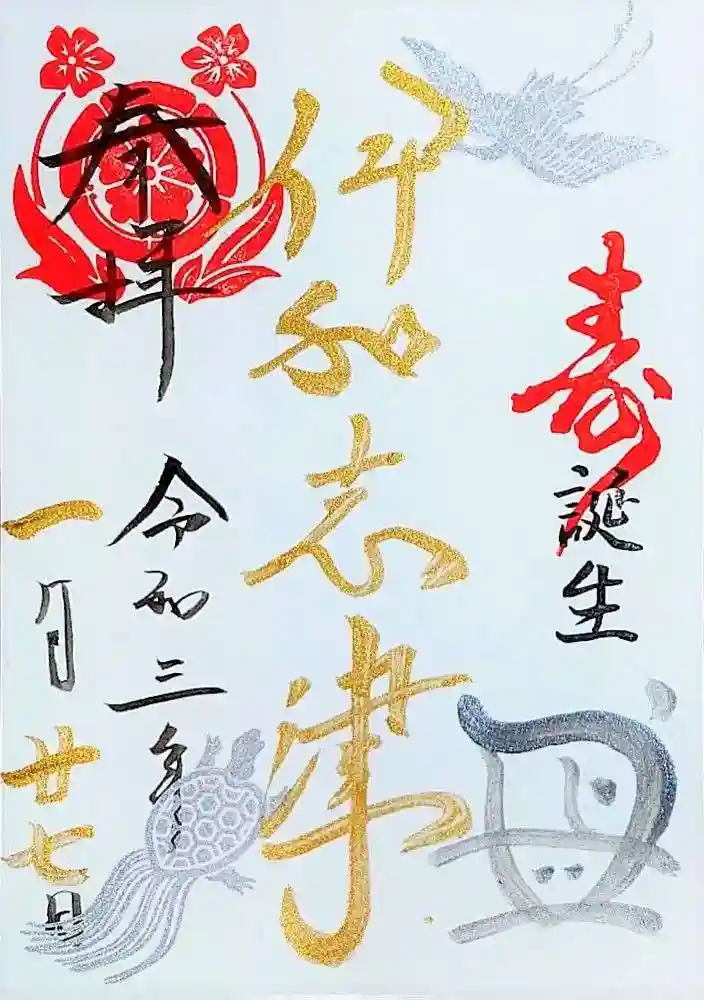 寿
誕生
丑
伊和志津
奉拝
令和三年
一月廿七日